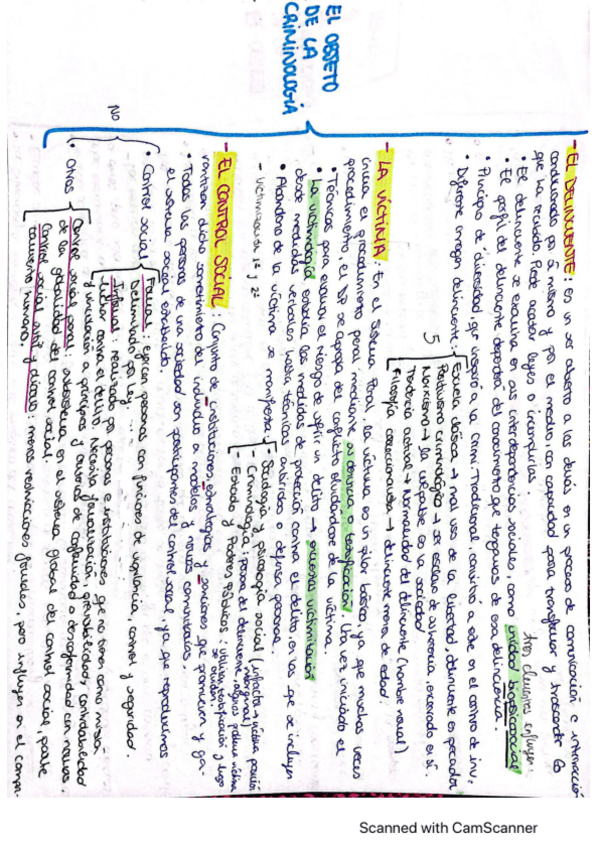 EL OBJETO
DE LA
CRIMINOLOGÍA
- EL DELINCUENTE: Es un ser abierto a los demás en un proceso de comunicación e interacción
condicionado por sí mismo y por el medio, con capacidad para transformar y trascender lo
que ha recibido. Puede acatar leyes o incumplirlas.
• El delincuente se examina en sus interdependencias sociales, como unidad biopsicosocial
tres elementos influyen.
• El perfil del delincuente dependerá del conocimiento que tengamos de esa delincuencia.
• Principio de diversidad que inspiró a la Crim. Tradicional, convirtió a este en el centro de inv.
• Diferente imagen delincuente:
5
- Escuela clásica → mal uso de la libertad, delincuente es pecador
Positivismo criminológico → es esclavo de su herencia, encerrado en sí.
Marxismo → la culpable es la sociedad.
Tendencia actual → Normalidad del delincuente (hombre normal)
Filosofía correccionalista → delincuente menor de edad.
- LA VÍCTIMA: En el Sistema Penal, la víctima es un pilar básico, ya que muchas veces
inicia el procedimiento penal mediante su denuncia o testificación. Una vez iniciado el
procedimiento, el DP se apropia del conflicto olvidándose de la víctima.
• Técnicas para evaluar el riesgo de sufrir un delito → encuestas victimización
• La victimología estudia las medidas de protección contra el delito, en las que se incluyen
desde medidas verbales hasta técnicas antirrobo o defensa personal.
• Abandono de la víctima se manifiesta:
- Sociología y psicología social
- Criminología: pasa del delincuente,
- Estado y Poderes Públicos: utilizan testificación y luego
se olvidan.
- victimización 1ª y 2ª
- EL CONTROL SOCIAL: Conjunto de instituciones, estrategias y sanciones que promueven y ga-
rantizan dicho sometimiento del individuo a modelos y normas comunitarias.
• Todas las personas de una sociedad son partícipantes del control social, ya que reproducimos
el sistema social establecido.
NO
• Control social
Formal: ejercen personas con funciones de vigilancia, control y seguridad.
Delimitado por ley.
Informal: realizado por personas e instituciones que no tienen como misión
luchar contra el delito. Necesita formalización,
y vinculación a principios y criterios de conformidad o disconformidad con normas.
• Otros
Control social penal: subsistema en el sistema global del control social, parte
de la globalidad del control social.
Control social sutil y difuso: menos restricciones formales, pero influyen en el compor-
tamiento humano.
Scanned with CamScanner